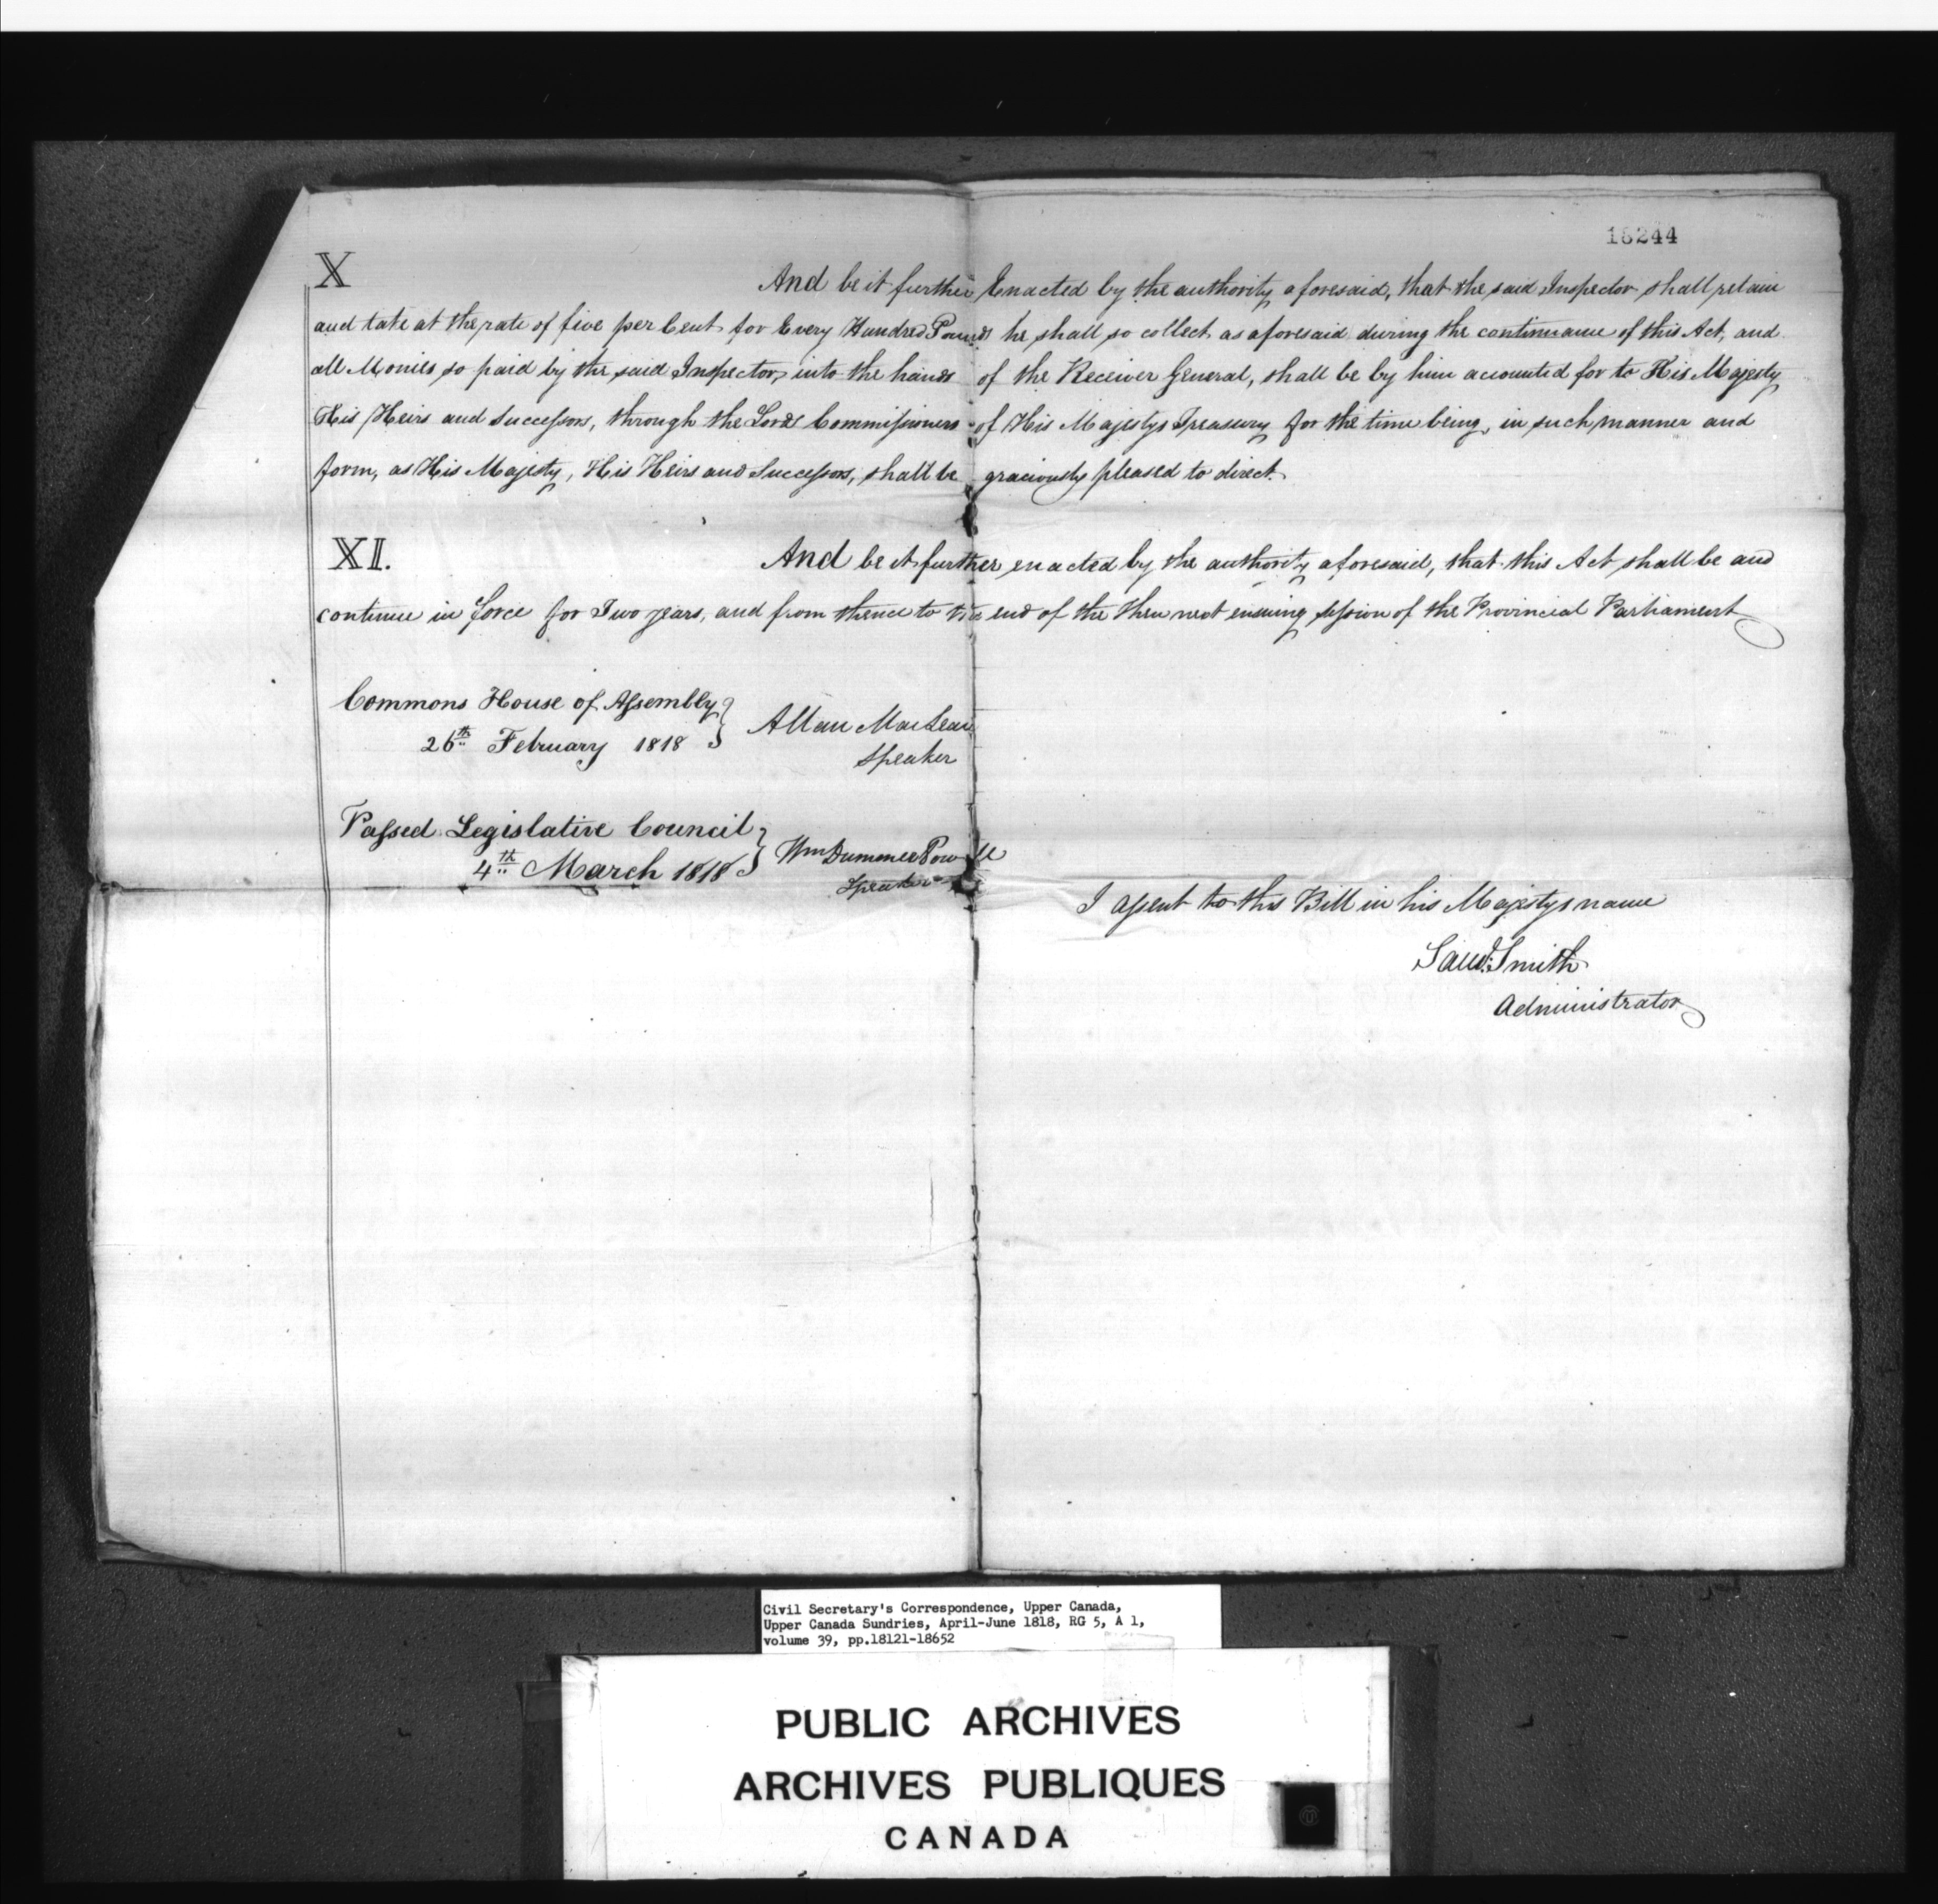 18244
X
And be it further Enacted by the authority aforesaid, that the said Inspector shall retain
and take at the rate of five per Cent for Every Hundred Pounds he shall so collect as aforesaid during the continuance of this Act, and
all Monies so paid by the said Inspector, into the hands of the Receiver General, shall be by him accounted for to His Majesty
His Heirs and Successors, through the Lords Commissioners of His Majestys Treasury for the time being, in such manner and
form, as His Majesty, His Heirs and Successors, shall be graciously pleased to direct.
XI.
And be it further enacted by the authority aforesaid, that this Act shall be and
continue in force for Two years, and from thence to the end of the then next ensuing session of the Provincial Parliament
Commons House of Assembly
26th February 1818
Allan MacLean
Speaker
Passed Legislative Council
4th March 1818
Wm Dummer Powell
Speaker
I assent to this Bill in his Majestys name
Saml. Smith
Administrator
Civil Secretary's Correspondence, Upper Canada,
Upper Canada Sundries, April-June 1818, RG 5, A 1,
volume 39, pp.18121-18652
PUBLIC ARCHIVES
ARCHIVES PUBLIQUES
CANADA